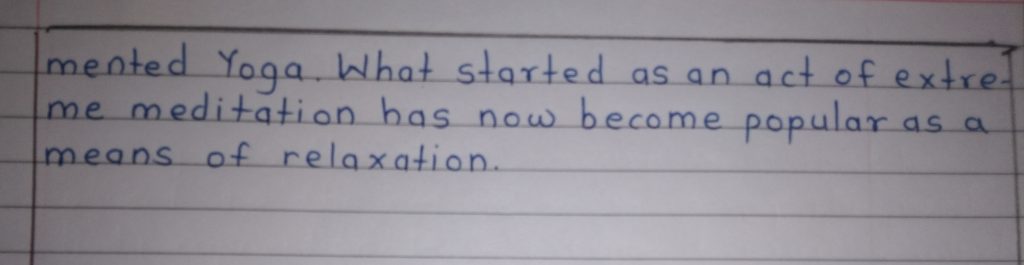 mented Yoga. What started as an act of extre-
me meditation has now become popular as a
means of relaxation.